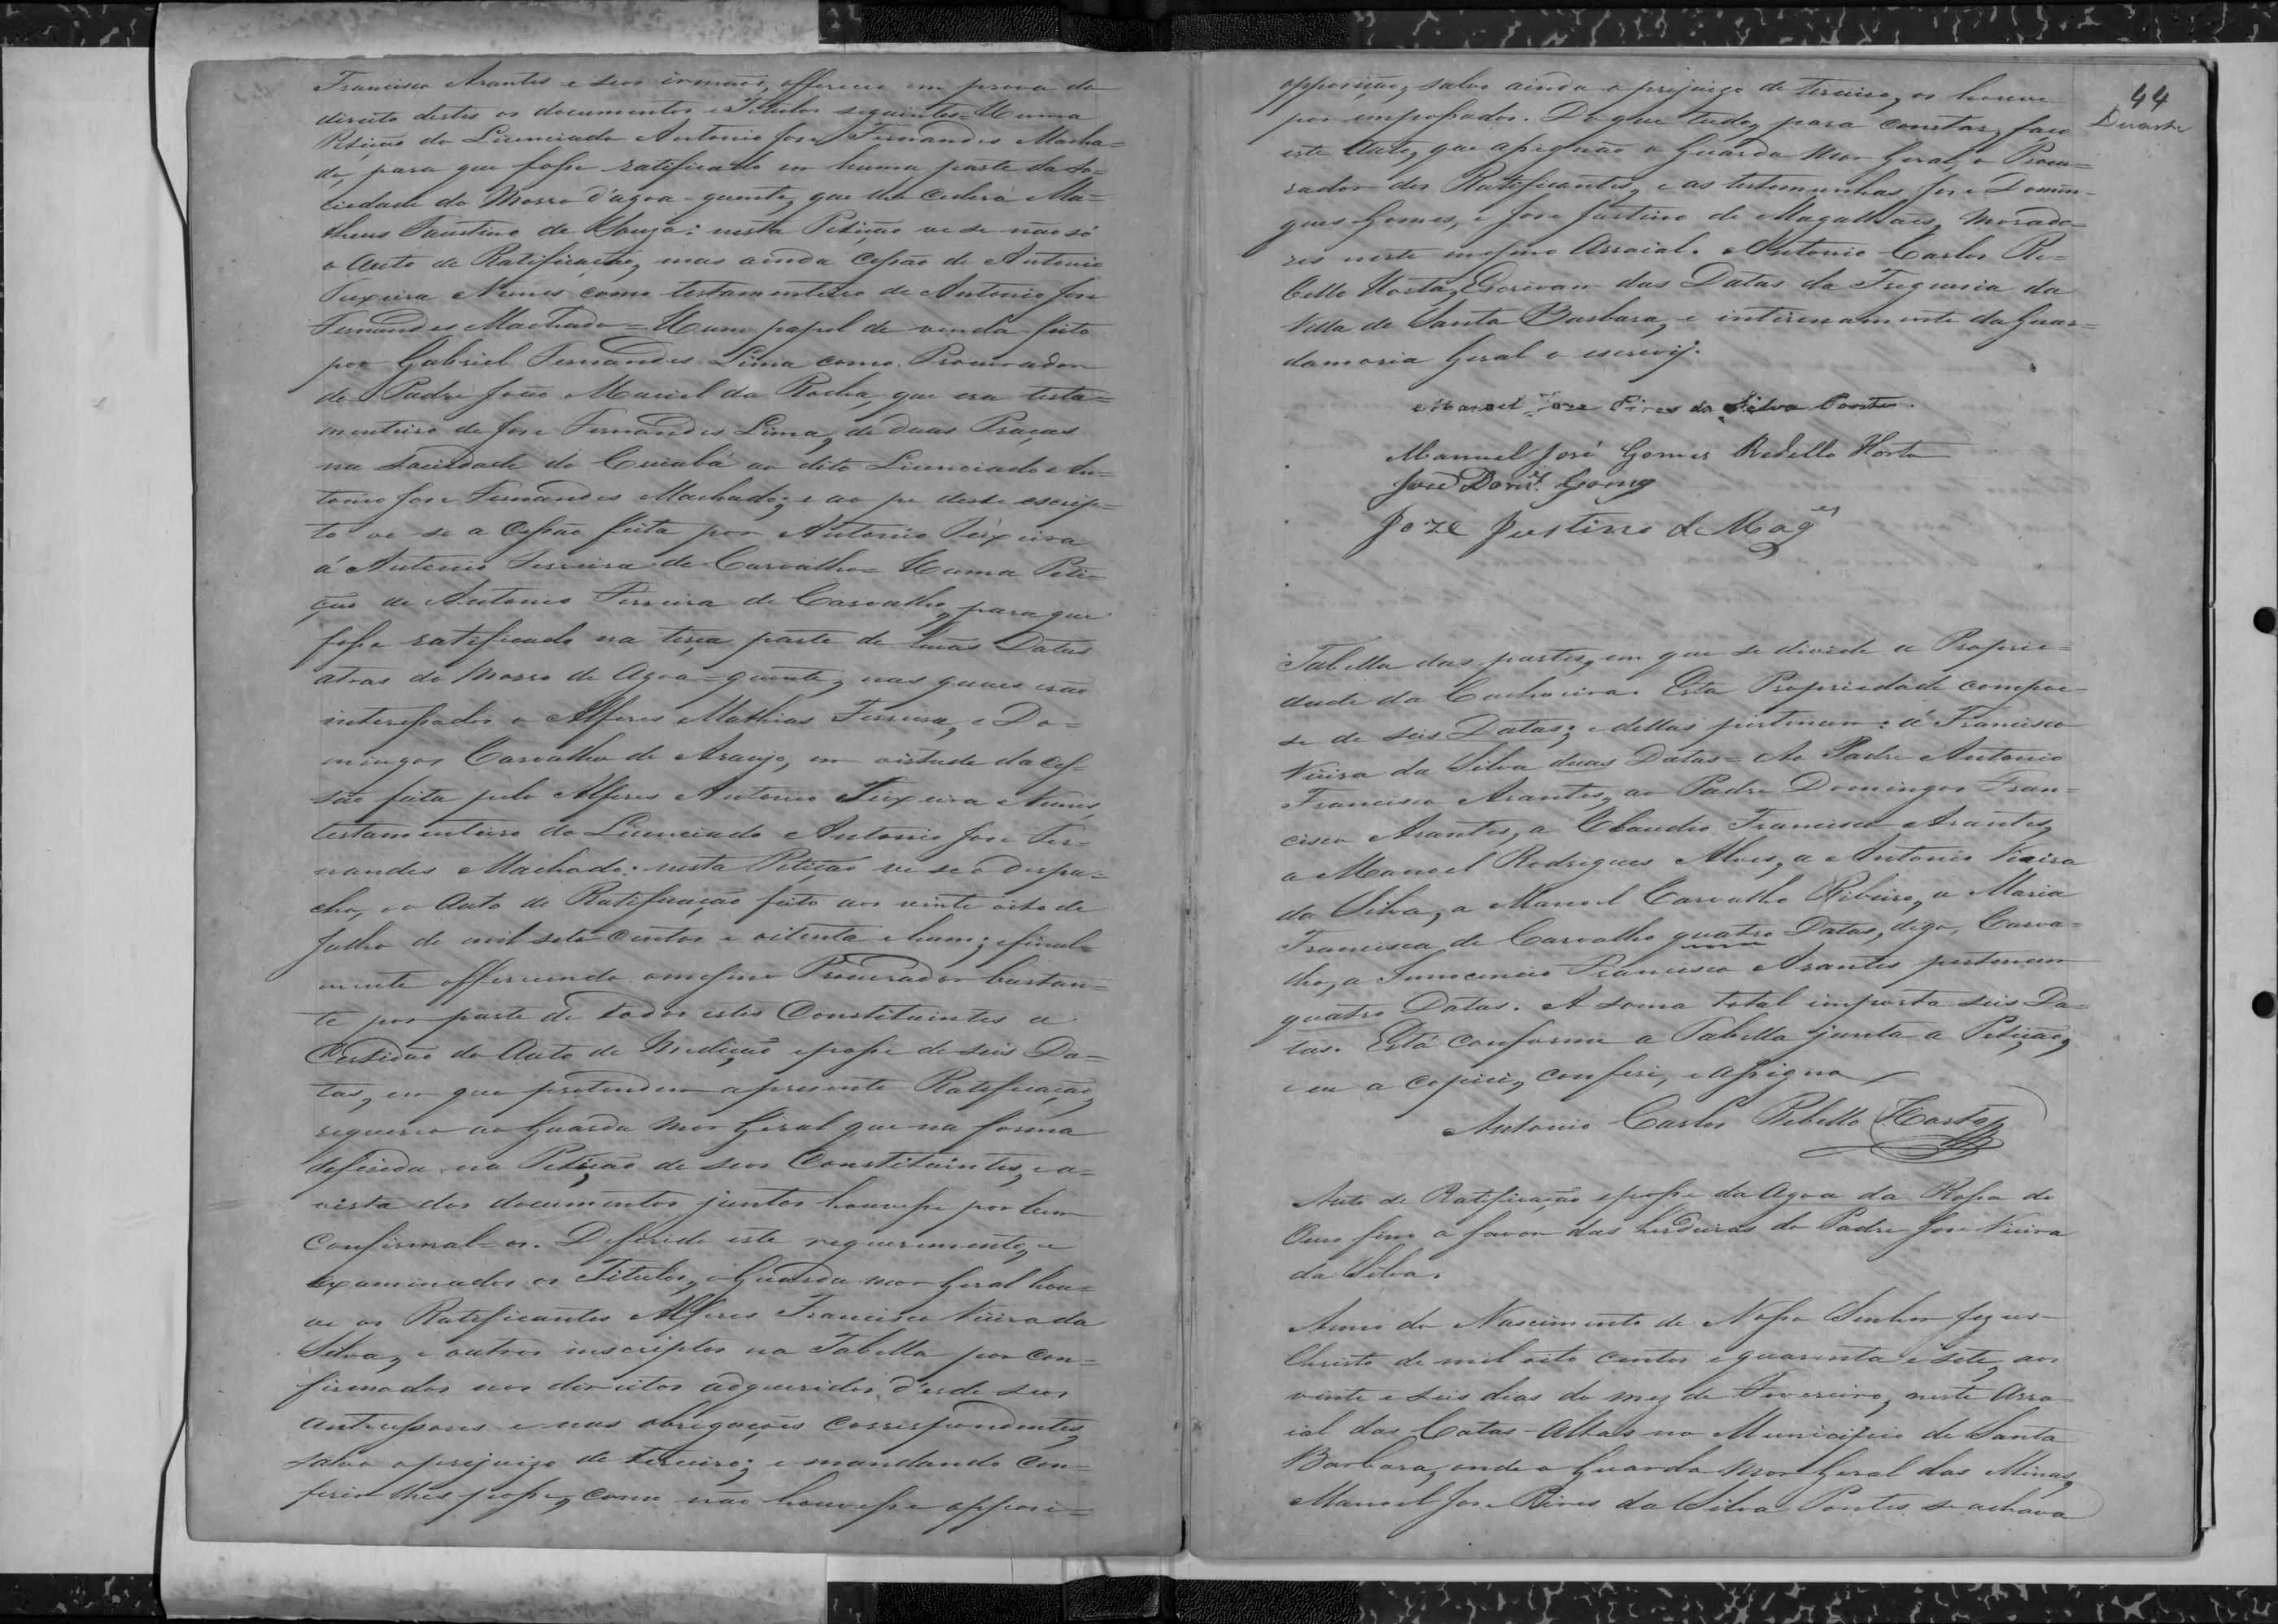 Francisco Arantes e seos irmãos, offereceo em prova do
direito destes os documentos, e Titulos seguintes = Huma
Petição do Licenciado Antonio Jose Fernandes Macha=
do, para que fosse ratificado em huma parte da So=
ciedade do Morro d'agoa-quente, que lhe cedera Ma=
theus Faustino de Souza: nesta Petição ve se não só
o Auto de Ratificação, mas ainda Cessão de Antonio
Teixeira Nunes como testamenteiro de Antonio Jose
Fernandes Machado = Hum papel de venda feito
por Gabriel Fernandes Lima como Procurador
do Padre João Maciel da Rocha, que era testa=
menteiro de Jose Fernandes Lima, de duas Praças
na Sociedade do Cuiabá ao dito Licenciado An=
tonio Jose Fernandes Machado; e ao pe deste escrip=
to ve se a Cessão feita por Antonio Teixeira
á Antonio Ferreira de Carvalho = Huma Peti=
ção de Antonio Ferreira de Carvalho, para que
fosse ratificado na terça parte de humas Datas
atras do Morro de Agoa=quente, nas quaes erão
interessados o Alferes Mathias Ferreira, e Do=
mingos Carvalho de Araujo, em virtude da Ces=
são feita pelo Alferes Antonio Teixeira Nunes,
testamenteiro do Licenciado Antonio Jose Fer=
nandes Machado: nesta Petição ve se o despa=
cho, e o Auto de Ratificação feito aos vinte oito de
Julho de mil sete centos e oitenta e hum; e final=
mente offerecendo o mesmo Procurador bastan=
te por parte de todos estes Constituintes a
Certidão do Auto de Medição e posse de seis Da=
tas, em que pretendem a presente Ratificação,
requereo ao Guarda Mor Geral que na forma
deferida na Petição de seos Constituintes, e a=
vista dos documentos juntos houvesse por bem
Confirmal-os. Deferido este requerimento, e
examinados os Titulos, o Guarda mor Geral hou=
ve os Ratificantes Alferes Francisco Vieira da
Silva, e outros inscriptos na Tabella por con=
firmados nos direitos adqueridos, d'esde seos
antecessores e nas obrigações correspondentes,
salvo o prejuizo de terceiro; e mandando Con=
ferir lhes posse, como não houvesse opposi=
44
Duarte
opposição, salvo ainda o prejuizo de terceiro, os houve
por empossados. Do que tudo, para constar, faço
este Auto, que assignão o Guarda Mor Geral, o Procu=
rador dos Ratificantes, e as testemunhas Jose Domin=
gues Gomes, e Jose Justino de Magalhães, morado=
res neste mesmo Arraial. Antonio Carlos Re=
bello Horta, Escrivam das Datas da Freguesia da
Villa de Santa Barbara, e interinamente da Guar=
damoria Geral o escrevy.
Manoel Jose Pires da Silva Pontes.
Manuel José Gomes Rebello Horta
José Doms. Gomes
Joze Justino de Mages
Tabella das partes, em que se divide a Proprie=
dade da Cachoeira. Esta Propriedade compoe
se de seis Datas; e dellas pertencem: á Francisco
Vieira da Silva duas Datas = Ao Padre Antonio
Francisco Arantes, ao Padre Domingos Fran=
cisco Arantes, a Claudio Francisco Arantes,
a Manoel Rodrigues Alves, a Antonio Vieira
da Silva, a Manoel Carvalho Ribeiro, a Maria
Francisca de Carvalho quatro Datas, digo, Carva=
lho, a Innocencio Francisco Arantes pertencem
quatro Datas. A soma total importa seis Da=
tas. Está conforme a Tabella junta a Petição,
e eu a copiei, conferi, e assigno
Antonio Carlos Rebello Horta
Auto de Ratificação e posse da Agoa da Rossa do
Ouro fino a favor das herdeiras do Padre Jose Vieira
da Silva.
Anno do Nascimento de Nosso Senhor Jezus-
Christo de mil oito centos e quarenta e sete, aos
vinte e seis dias do mez de Fevereiro, neste Arra
ial das Catas-Altas no Municipio de Santa
Barbara, onde o Guarda Mor Geral das Minas,
Manoel Jose Pires da Silva Pontes se achava